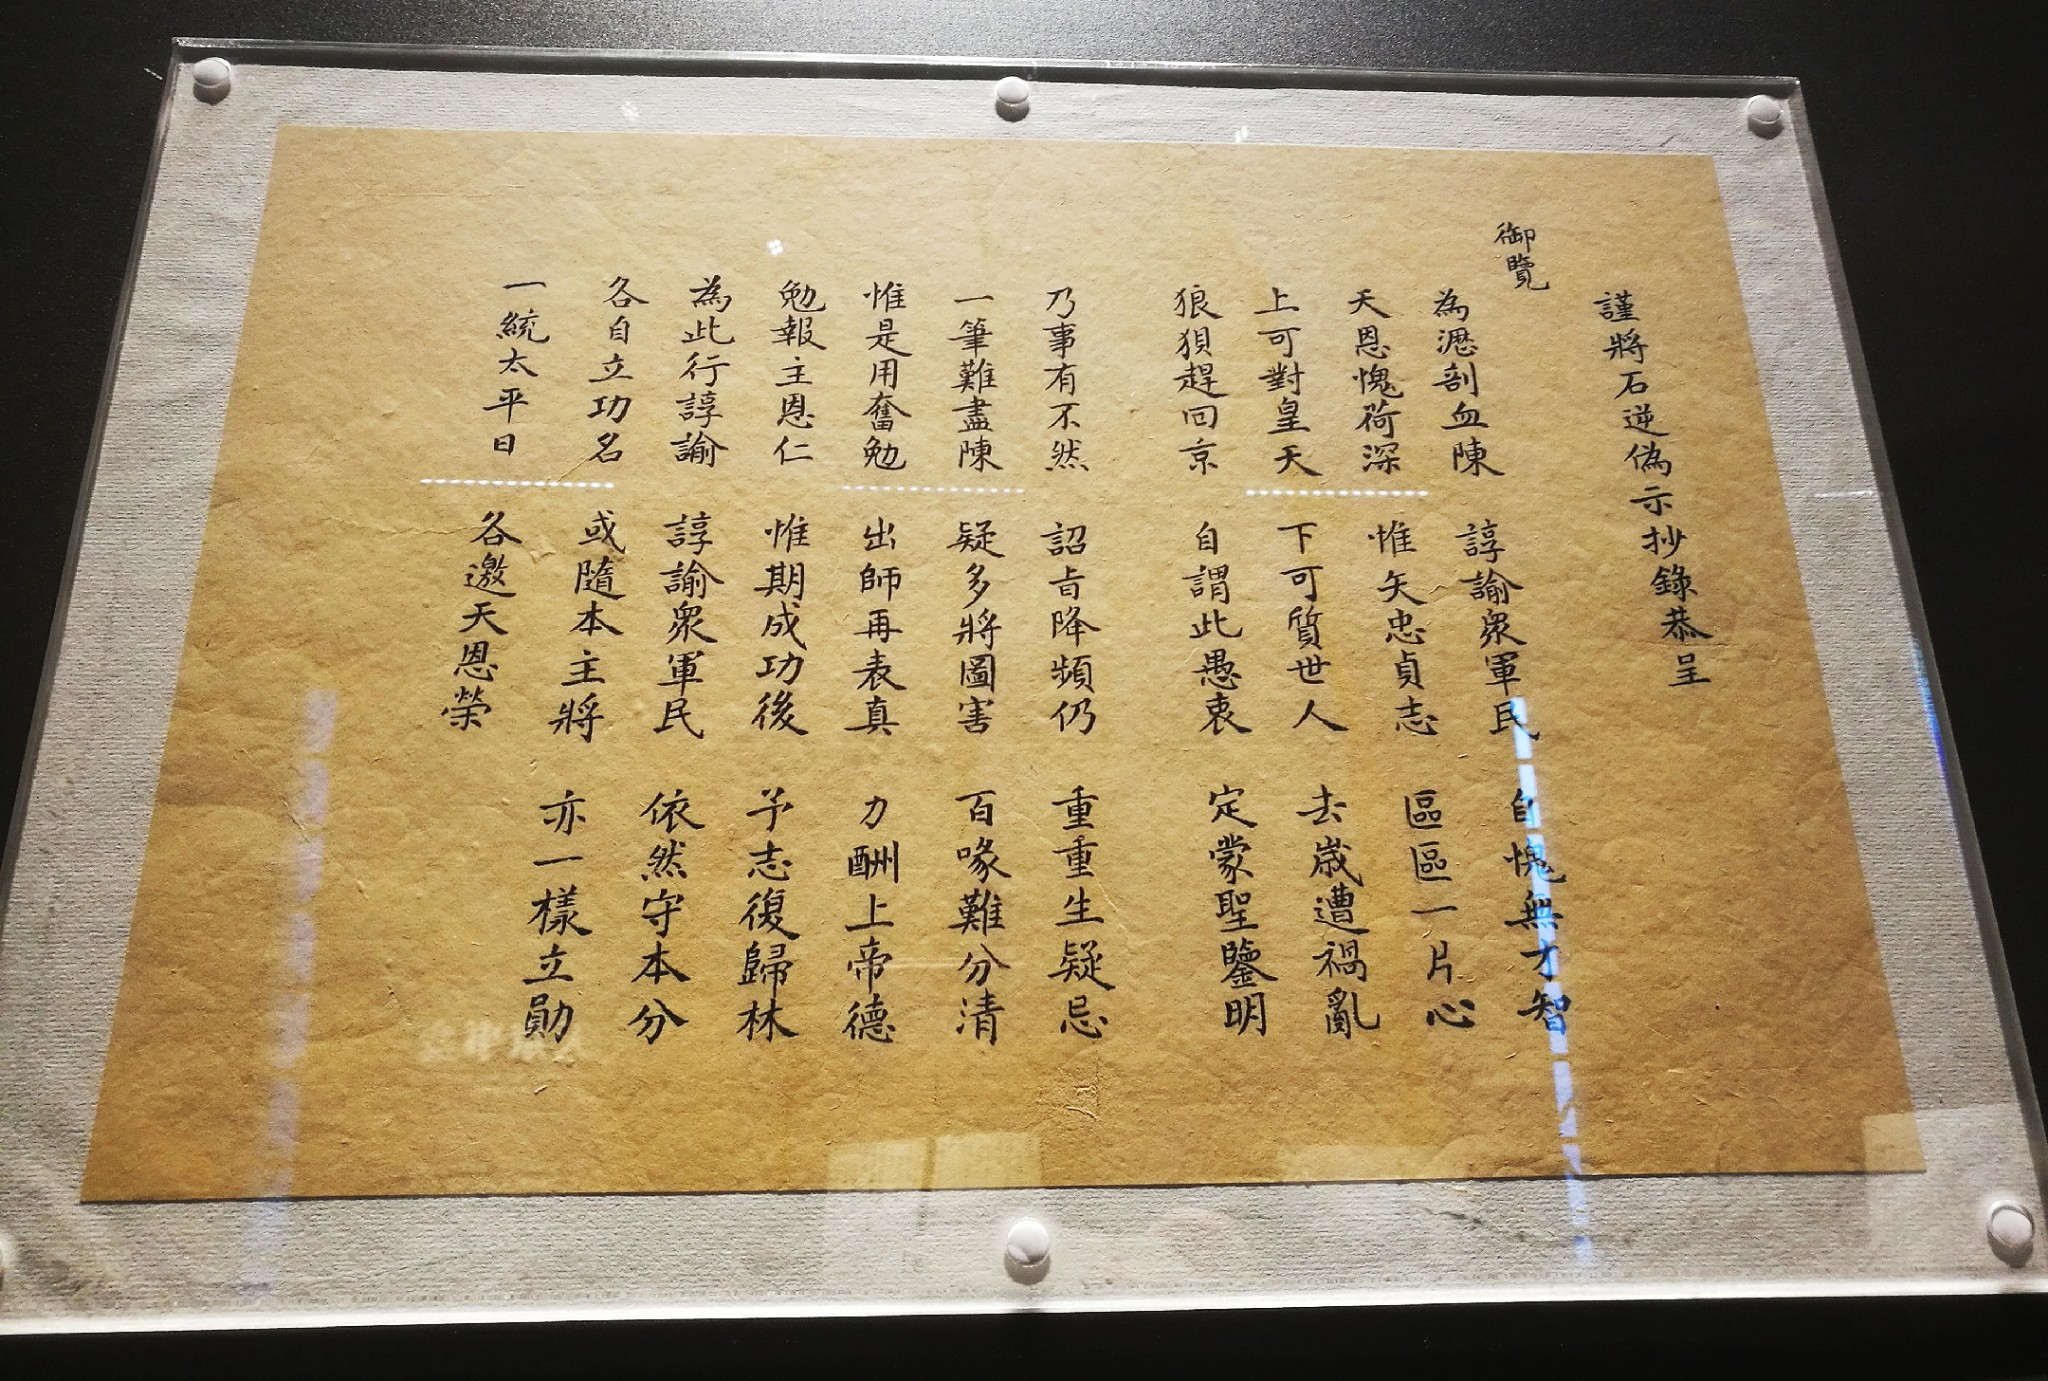 謹將石逆偽示抄錄恭呈
御覽
為瀝剖血陳 諄諭衆軍民 自愧無才智
天恩愧荷深 惟矢忠貞志 區區一片心
上可對皇天 下可質世人 去歲遭禍亂
狼狽趕回京 自謂此愚衷 定蒙聖鑒明
乃事有不然 詔旨降頻仍 重重生疑忌
一筆難盡陳 疑多將圖害 百喙難分清
惟是用奮勉 出師再表真 力酬上帝德
勉報主恩仁 惟期成功後 予志復歸林
為此行諄諭 諄諭衆軍民 依然守本分
各自立功名 或隨本主將 亦一樣立勛
一統太平日 各邀天恩榮